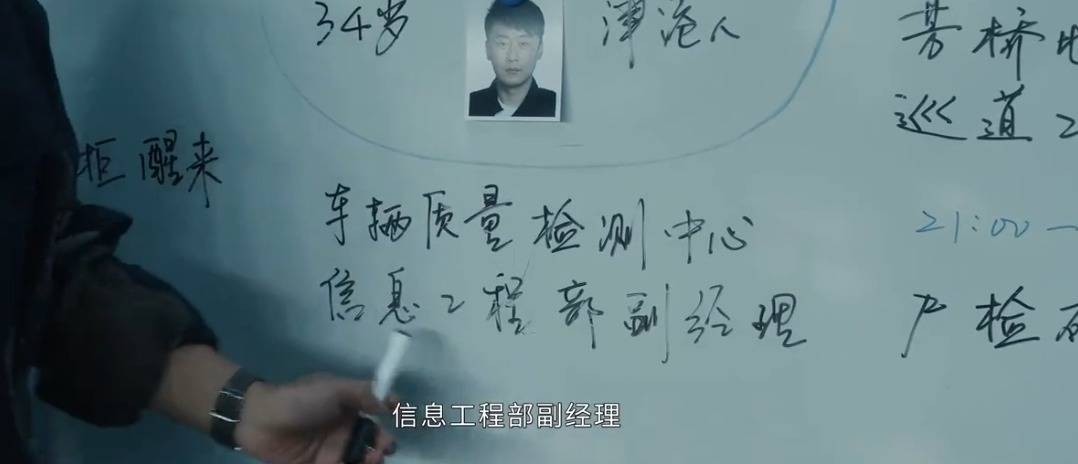 34岁
津港人
芳桥
巡道工
醒来
车辆质量检测中心
21:00
信息工程部副经理
严检
信息工程部副经理